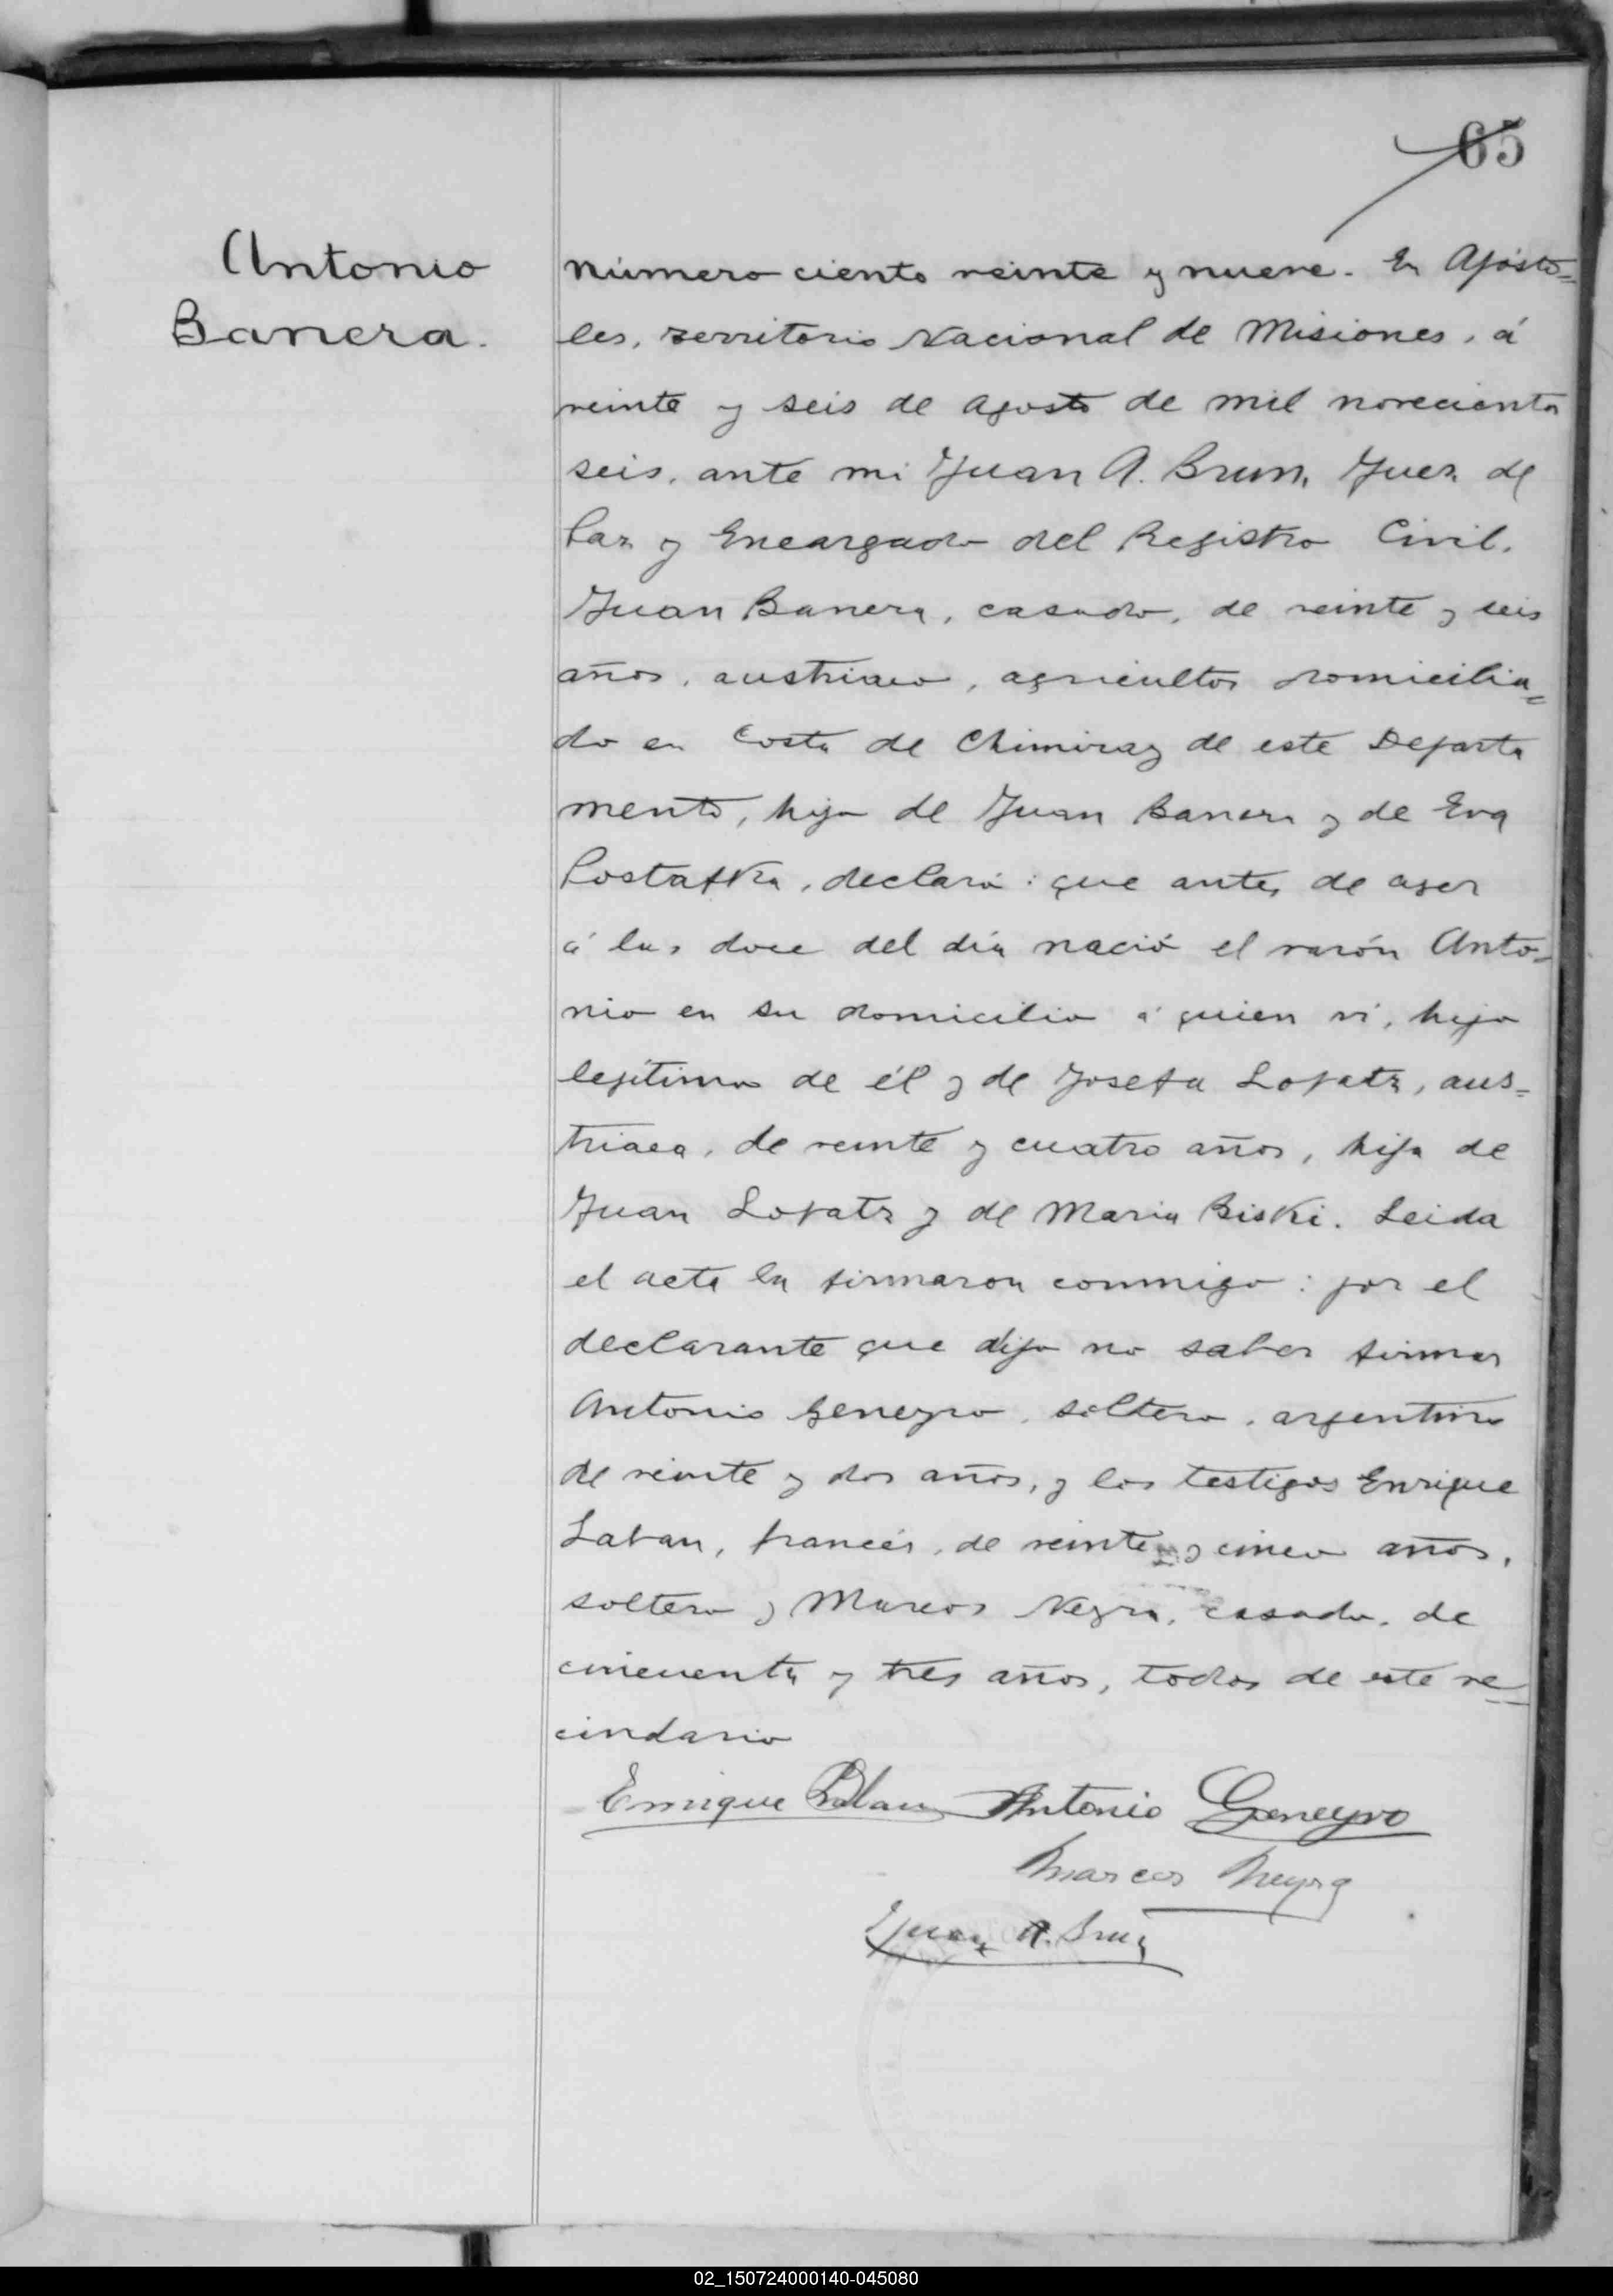 65
Antonio
Banera.
Número ciento veinte y nueve. En Apósto=
les, Territorio Nacional de Misiones, á
veinte y seis de Agosto de mil novecientos
seis, ante mi Juan A. Brun, Juez de
Paz y Encargado del Registro Civil.
Juan Banera, casado, de veinte y seis
años, austriaco, agricultor domicilia=
do en Costa de Chimiray de este Departa
mento, hijo de Juan Banera y de Eva
Postafka, declaró: que antes de ayer
á las doce del día nació el varón Anto-
nio en su domicilio á quien ví, hijo
legítimo de él y de Josefa Lopatz, aus=
triaca, de veinte y cuatro años, hija de
Juan Lopatz y de Maria Biski. Leida
el acta la firmaron conmigo: por el
declarante que dijo no saber firmar
Antonio Geneyro, soltero, argentino
de veinte y dos años, y los testigos Enrique
francés, de veinte y cinco años,
soltero y Marcos Neyra, casado, de
cincuenta y tres años, todos de este ve=
cindario
Enrique Antonio Geneyro
Marcos Neyra
Juan A. Brun
02_150724000140-045080